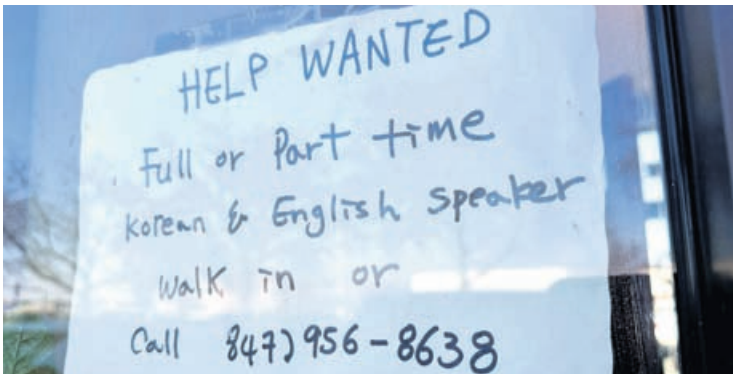 HELP WANTED
Full or Part time
Korean & English speaker
Walk in or
Call 847) 956-8638